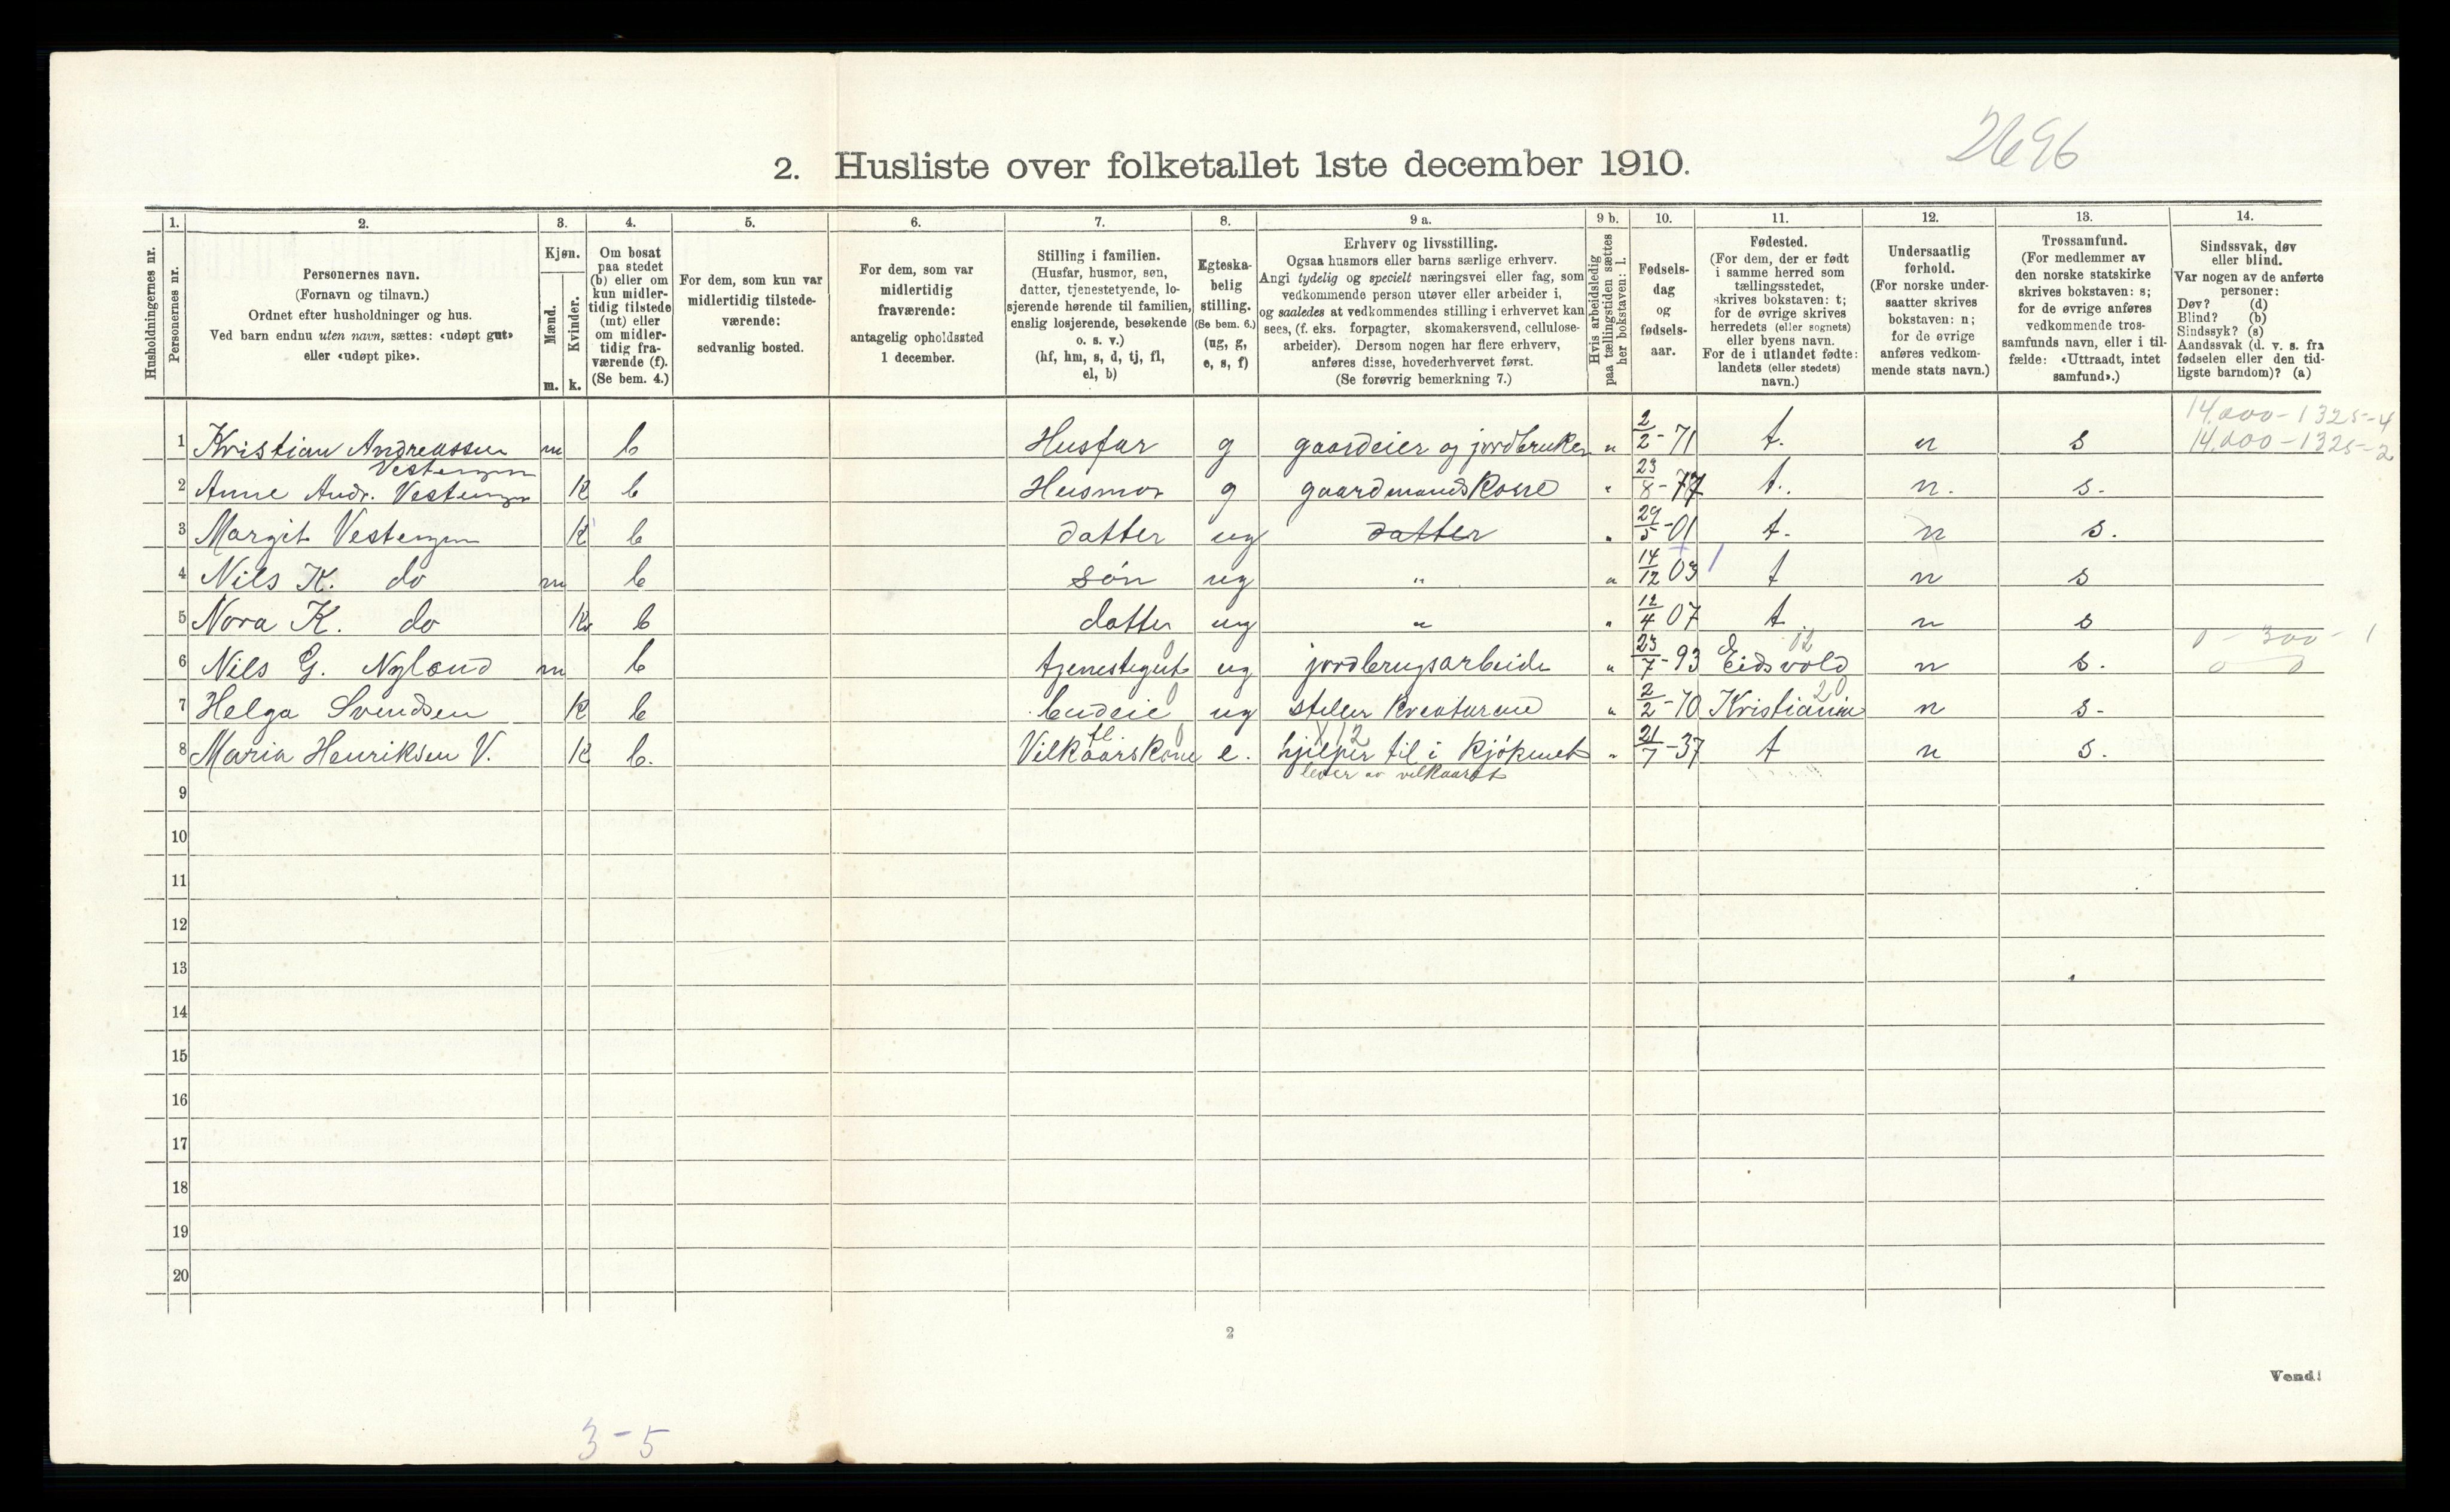 2696
2. Husliste over folketallet 1ste december 1910.
Husholdningernes nr.
1. Personernes nr.
2. Personernes navn.
(Fornavn og tilnavn.)
Ordnet efter husholdninger og hus.
Ved barn endnu uten navn, sættes: «udøpt gut»
eller «udøpt pike».
3. Kjøn.
Mænd. m.
Kvinder. k.
4. Om bosat
paa stedet
(b) eller om
kun midler-
tidig tilstede
(mt) eller
om midler-
tidig fra-
værende (f).
(Se bem. 4.)
5. For dem, som kun var
midlertidig tilstede-
værende:
sedvanlig bosted.
6. For dem, som var
midlertidig
fraværende:
antagelig opholdssted
1 december.
7. Stilling i familien.
(Husfar, husmor, søn,
datter, tjenestetyende, lo-
sjerende hørende til familien,
enslig losjerende, besøkende
o. s. v.)
(hf, hm, s, d, tj, fl,
el, b)
8. Egteska-
belig
stilling.
(Se bem. 6.)
(ug, g,
e, s, f)
9 a. Erhverv og livsstilling.
Ogsaa husmors eller barns særlige erhverv.
Angi tydelig og specielt næringsvei eller fag, som
vedkommende person utøver eller arbeider i,
og saaledes at vedkommendes stilling i erhvervet kan
sees, (f. eks. forpagter, skomakersvend, cellulose-
arbeider). Dersom nogen har flere erhverv,
anføres disse, hovederhvervet først.
(Se forøvrig bemerkning 7.)
9 b. Hvis arbeidsledig
paa tællingstiden sættes
her bokstaven: l.
10. Fødsels-
dag
og
fødsels-
aar.
11. Fødested.
(For dem, der er født
i samme herred som
tællingsstedet,
skrives bokstaven: t;
for de øvrige skrives
herredets (eller sognets)
eller byens navn.
For de i utlandet fødte:
landets (eller stedets)
navn.)
12. Undersaatlig
forhold.
(For norske under-
saatter skrives
bokstaven: n;
for de øvrige
anføres vedkom-
mende stats navn.)
13. Trossamfund.
(For medlemmer av
den norske statskirke
skrives bokstaven: s;
for de øvrige anføres
vedkommende tros-
samfunds navn, eller i til-
fælde: «Uttraadt, intet
samfund».)
14. Sindssvak, døv
eller blind.
Var nogen av de anførte
personer:
Døv? (d)
Blind? (b)
Sindssyk? (s)
Aandssvak (d. v. s. fra
fødselen eller den tid-
ligste barndom)? (a)
14.000-1325-4
1 Kristian Andreassen m b Husfar g gaardeier og jordbruker " 2/2-71 t. n s 14.000-1325-2
Vestengen
2 Anne Andr. Vestengen k b Husmor g gaardmandskone " 23/8-77 t. n. s.
3 Margit Vestengen k b datter ug datter " 29/5-01 t. n s.
4 Nils K. do m b søn ug " " 14/12 03 t n s
5 Nora K. do k b datter ug " " 12/4 07 t n s
02 0-300-1
6 Nils G. Nyland m b tjenestegut ug jordbrugsarbeide " 23/7-93 Eidsvold n s. 0 0
20
7 Helga Svendsen k b budeie ug steller kreaturene " 2/2-70 Kristiania n s-
fl. X12
8 Maria Henriksen V. k b. Vilkaarskone e. hjelper til i kjøkenet " 21/7-37 t n s.
lever av vilkaaret
9
10
11
12
13
14
15
16
17
18
19
20
2
Vend!
3-5